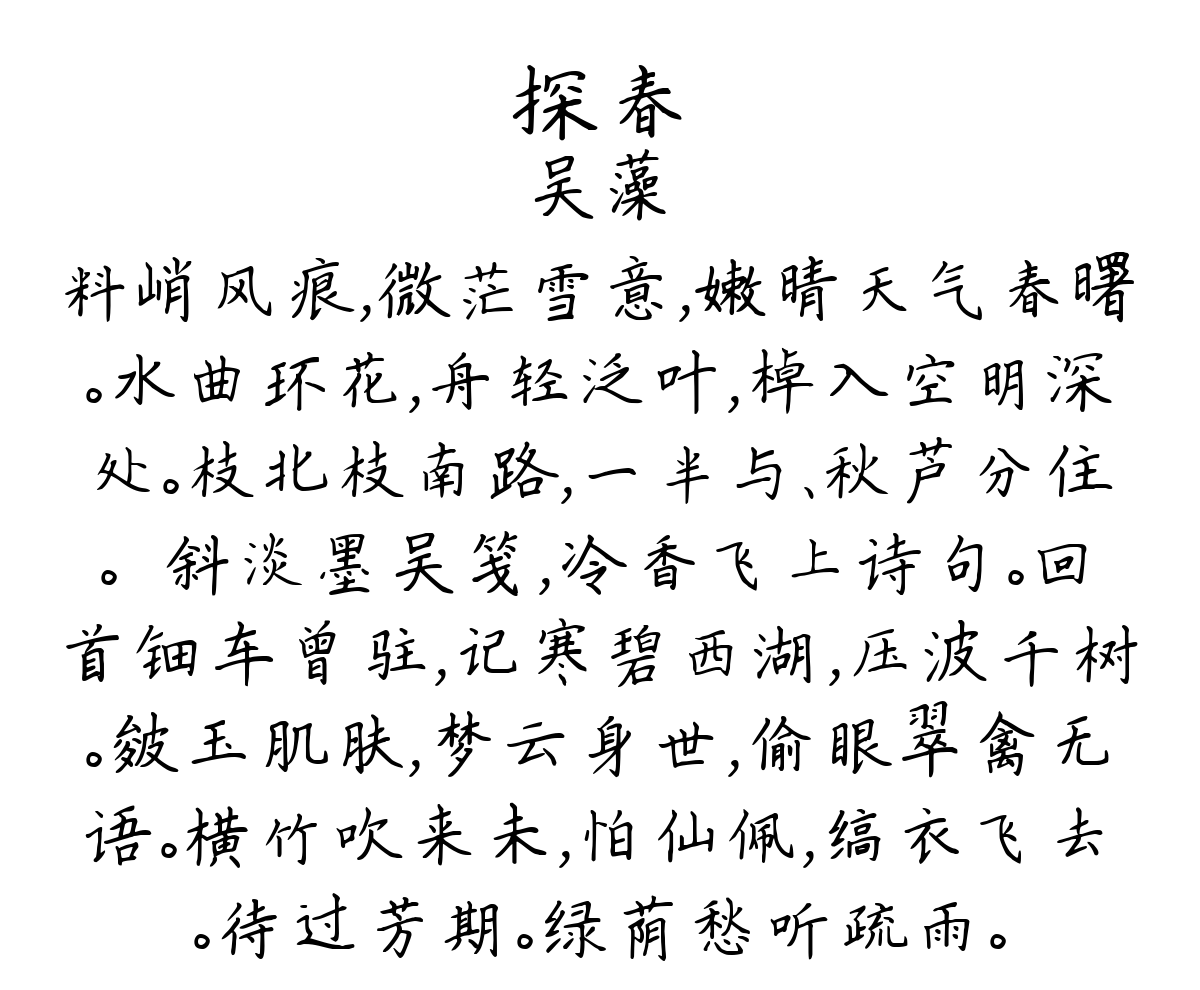 探春
吴藻
料峭风痕,微茫雪意,嫩晴天气春曙
。水曲环花,舟轻泛叶,棹入空明深
处。枝北枝南路,一半与、秋芦分住
。 斜淡墨吴笺,冷香飞上诗句。回
首钿车曾驻,记寒碧西湖,压波千树
。皴玉肌肤,梦云身世,偷眼翠禽无
语。横竹吹来未,怕仙佩,缟衣飞去
。待过芳期。绿荫愁听疏雨。